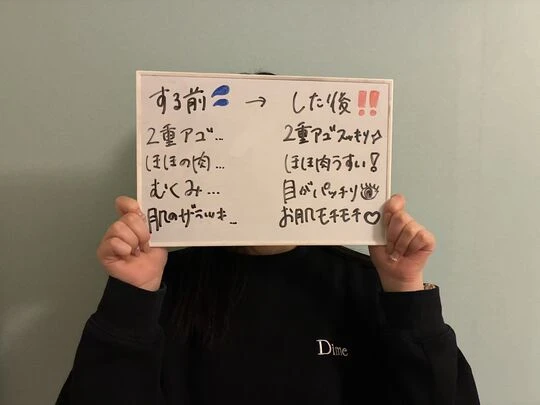 する前 → したり後!!
2重アゴ… 2重アゴスッキリ☆
ほほの肉… ほほ肉うすい!
むくみ… 目がパッチリ
肌のザラツキ… お肌モチモチ♡
Dime